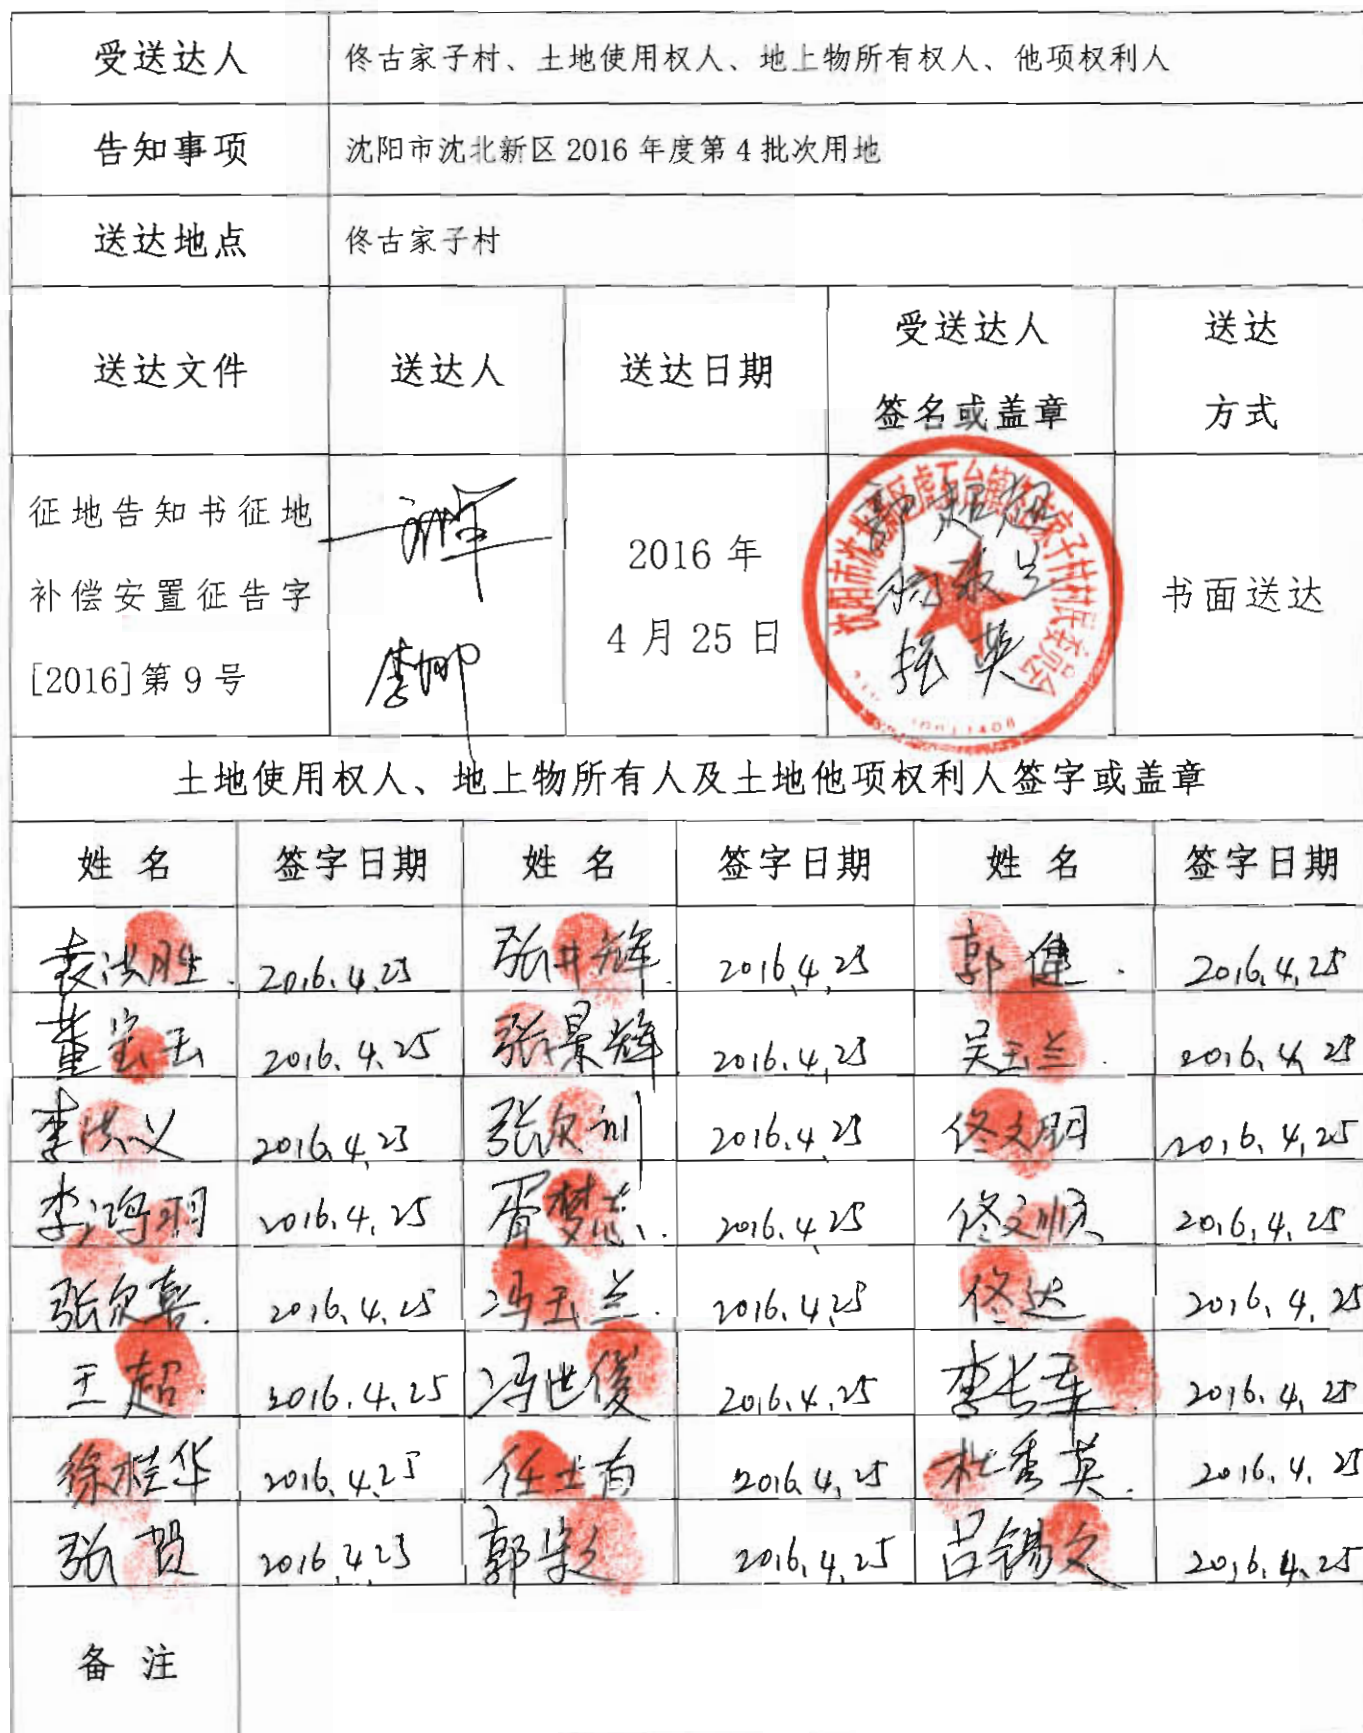 受送达人 佟古家子村、土地使用权人、地上物所有权人、他项权利人
告知事项 沈阳市沈北新区 2016 年度第 4 批次用地
送达地点 佟古家子村
送达文件 送达人 送达日期 受送达人 签名或盖章 送达 方式
征地告知书征地
补偿安置征告字
[2016]第 9 号
李娜
2016 年
4 月 25 日
沈阳市沈北新区虎石台镇佟古家子村村民委员会
郭超
书面送达
土地使用权人、地上物所有人及土地他项权利人签字或盖章
姓 名 签字日期 姓 名 签字日期 姓 名 签字日期
袁洪胜 2016.4.25 张井辉 2016.4.25 郭健 2016.4.25
董宝玉 2016.4.25 张景辉 2016.4.25 吴玉兰 2016.4.25
李洪义 2016.4.25 张贝训 2016.4.25 佟文明 2016.4.25
李鸿羽 2016.4.25 胥梦 2016.4.25 佟文顺 2016.4.25
张贝喜 2016.4.25 冯玉兰 2016.4.25 佟达 2016.4.25
王超 2016.4.25 冯世俊 2016.4.25 李长军 2016.4.25
徐桂华 2016.4.25 任士有 2016.4.25 杜秀英 2016.4.25
张贺 2016.4.25 郭 2016.4.25 吕锡文 2016.4.25
备 注